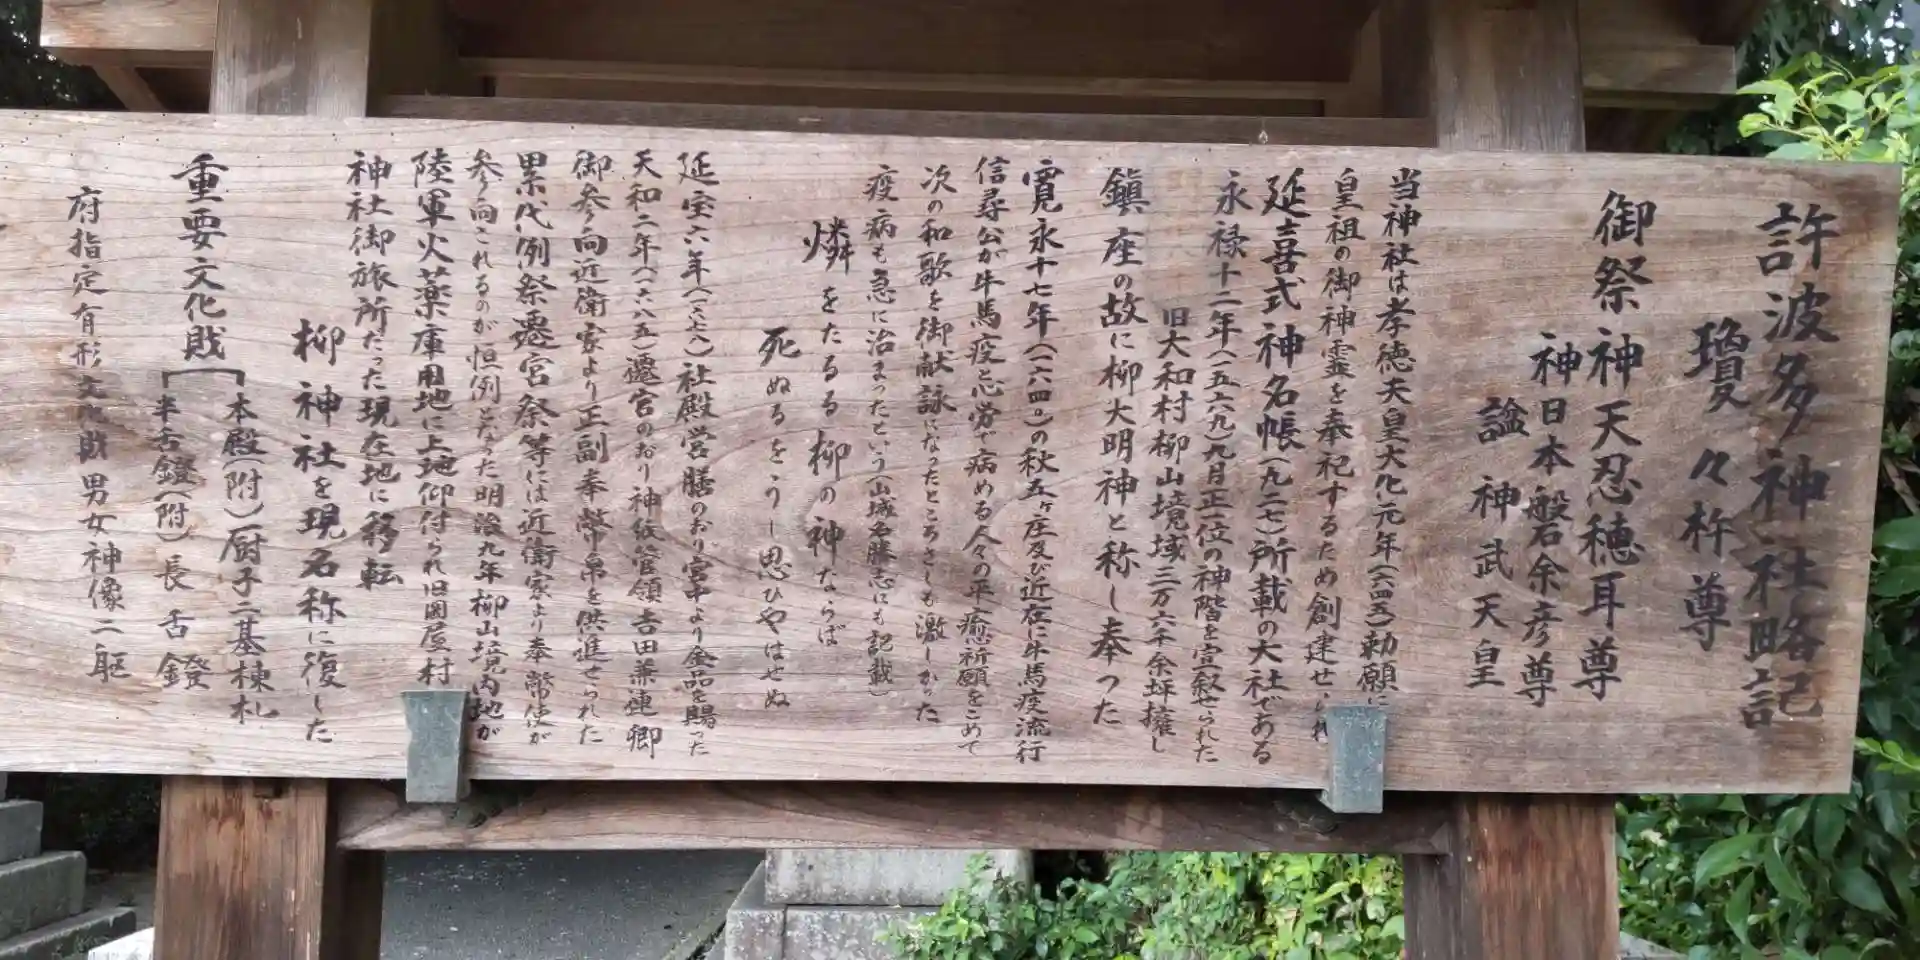 許波多神社略記
瓊々杵尊
御祭神天忍穂耳尊
神日本磐余彦尊
諡神武天皇
当神社は孝徳天皇大化元年(六四五)勅願に
皇祖の御神霊を奉祀するため創建せられ
延喜式神名帳(九二七)所載の大社である
永禄十二年(一五六九)九月正位の神階を宣叙せられた
旧大和村柳山境域三万六千余坪擁し
鎮座の故に柳大明神と称し奉った
寛永十七年(一六四〇)の秋五ヶ庄及び近在に牛馬疫流行
信尋公が牛馬疫と心労で病める人々の平癒祈願をこめて
次の和歌を御献詠になったところさしも激しかった
疫病も急に治まったという(山城名勝志にも記載)
燐をたるる柳の神ならば
死ぬるをうし思ひやはせぬ
延宝六年(一六七八)社殿営膳のおり宮中より金品を賜った
天和二年(一六八五)遷宮のおり神祇管領吉田兼連卿
御参向近衛家より正副奉幣帛を供進せられた
累代例祭遷宮祭等には近衛家より奉幣使が
参向されるのが恒例となった明治九年柳山境内地が
陸軍火薬庫用地に上地仰付られ旧岡屋村
神社御旅所だった現在地に移転
柳神社を現名称に復した
重要文化財
本殿(附)厨子二基棟札
半舌鐙(附)長舌鐙
府指定有形文化財男女神像二躯